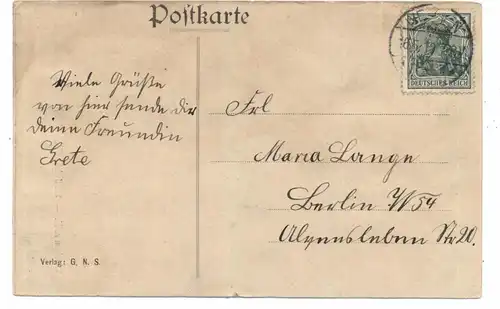 Postkarte
DEUTSCHES REICH
Viele Grüße
von hier sende dir
deine Freundin
Grete
Frl
Maria Lange
Berlin W 54
Alvensleben Str 20.
Verlag: G. N. S.